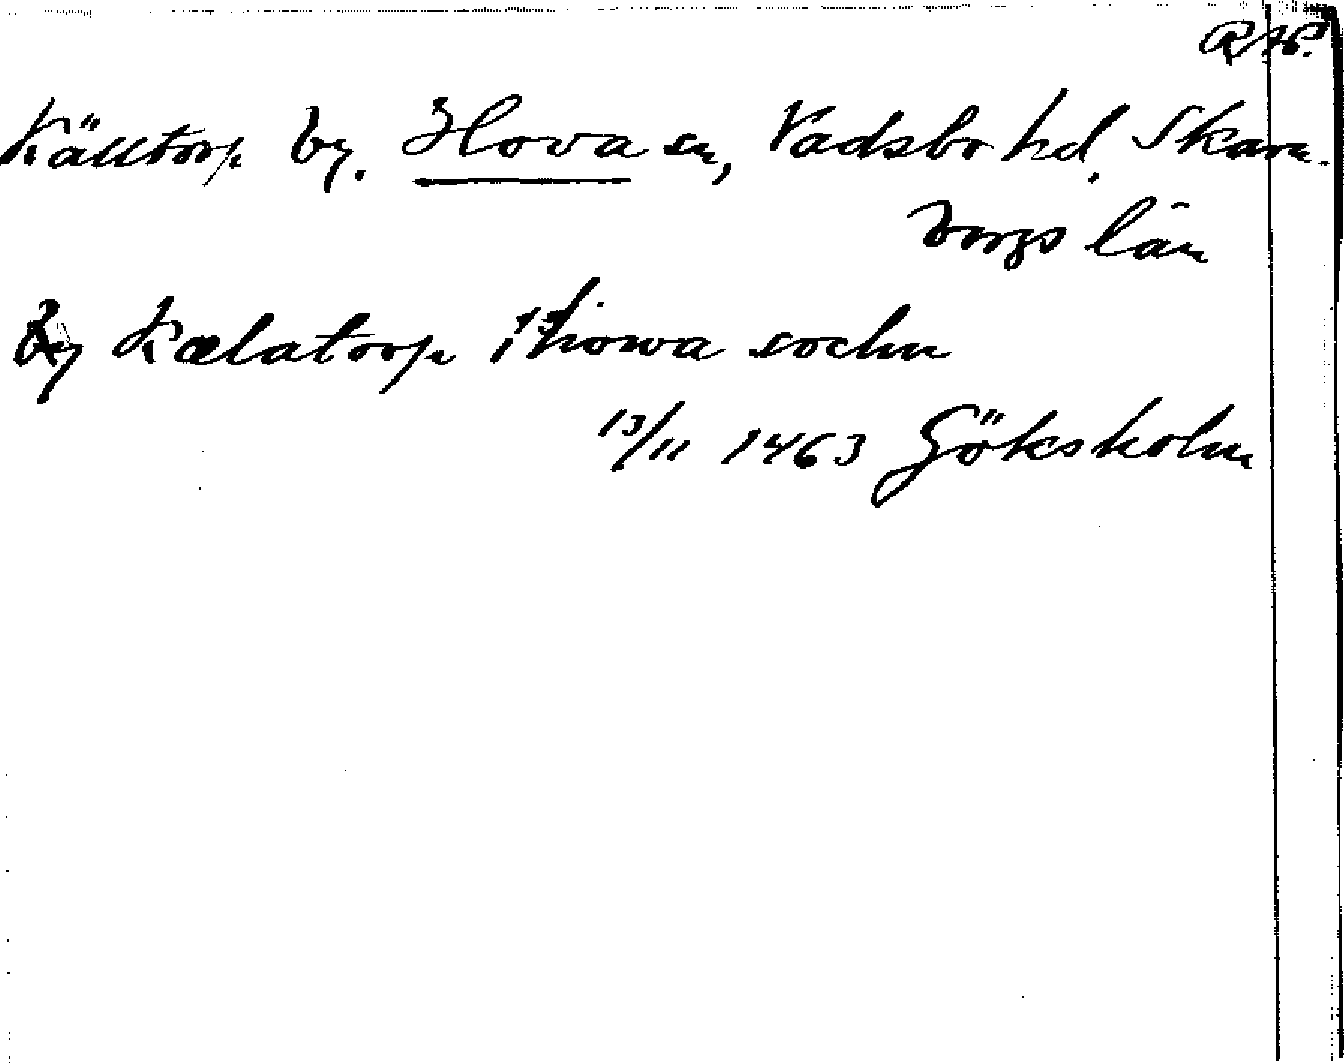 RAP.
Källtorp by. Hova sn, Vadsbo hd, Skara-
borgs län
By Kælatorp j howa sochn
13/11 1463 Göksholm